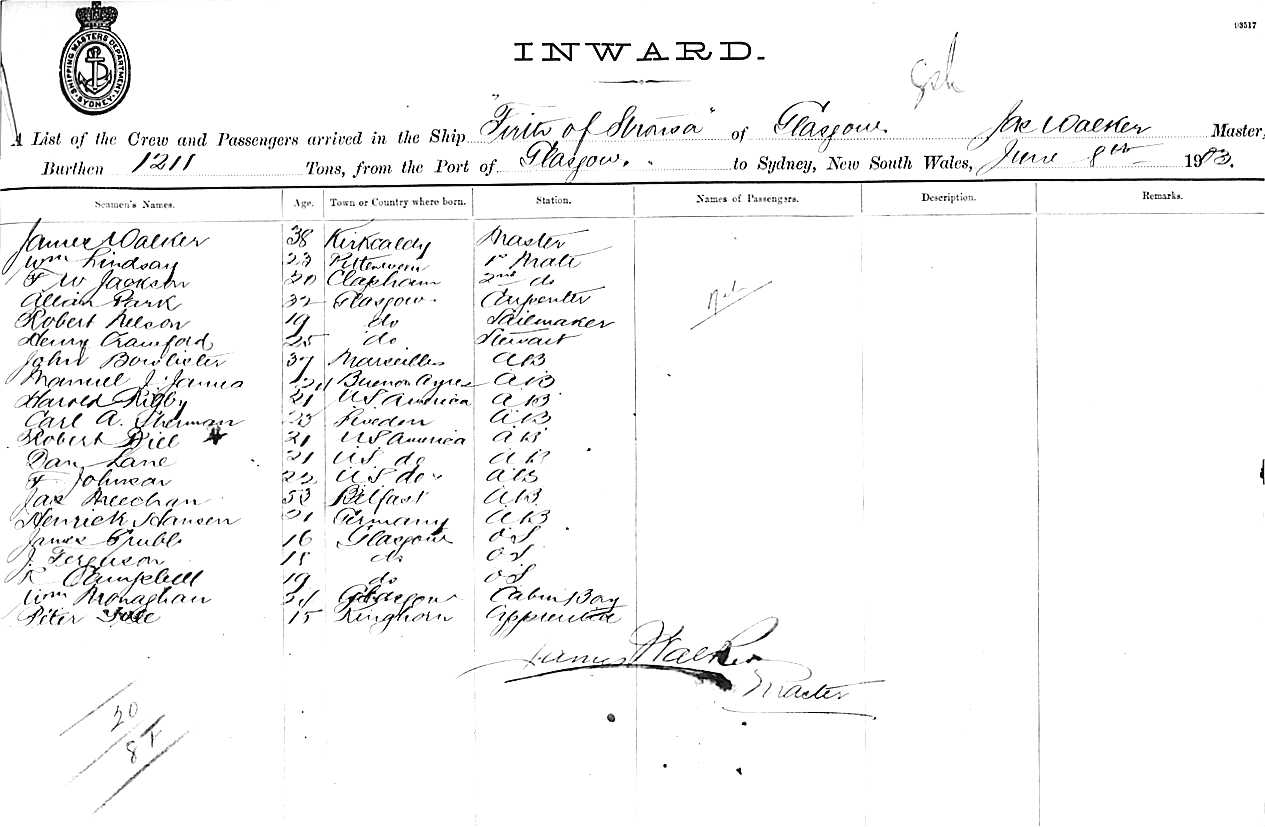 SHIPPING MASTERS DEPARTMENT. SYDNEY.
INWARD.
A List of the Crew and Passengers arrived in the Ship "Firth of Stronsa" of Glasgow Jas Walker Master,
Burthen 1211 Tons, from the Port of Glasgow. to Sydney, New South Wales, June 8th 1903.
Seamen's Names. Age. Town or Country where born. Station. Names of Passengers. Description. Remarks.
James Walker 38 Kirkcaldy Master
Wm Lindsay 23 Pittenweem 1st Mate
F W Jackson 20 Clapham 2nd do
Allan Park 32 Glasgow Carpenter
Robert Nelson 19 do Sailmaker
Henry Crawford 25 do Steward
John 37 Marseilles AB
Manuel J. James Buenos Ayres AB
Harold Rigby 21 US America AB
Carl A. Sherman 23 Sweden AB
Robert 21 US America AB
Dan Lane 21 US do AB
F Johnson 22 US do AB
Jas Meechan 53 Belfast AB
Henrick Hansen 21 Germany AB
James 16 Glasgow OS
J. Ferguson 18 do OS
R Campbell 19 do OS
Wm Monaghan Glasgow Cabin Boy
Peter 15 Kinghorn Apprentice
James Walker
Master
20